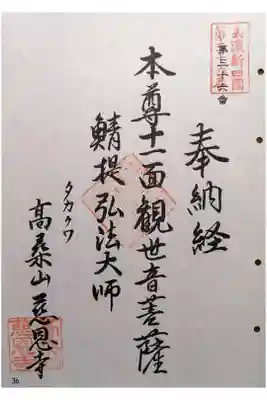 美濃新四國
第三十六番
奉納経
本尊十一面観世音菩薩
鯖提弘法大師
タカクワ
高桑山慈恩寺
36